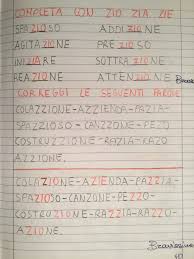 COMPLETA CON ZIO ZIA ZIE
SPAZIOSO ADDIZIONE
AGITAZIONE PREZIOSO
INIZIARE SOTTRAZIONE
REAZIONE ATTENZIONE
Brava
CORREGGI LE SEGUENTI PAROLE
COLAZZIONE-AZZIENDA-PAZIA-
SPAZZIOSO-CANZZONE-PEZO
COSTRUZZIONE-RAZIA-RAZO
AZZIONE.
COLAZIONE-AZIENDA-PAZZIA-
SPAZIOSO-CANZONE-PEZZO-
COSTRUZIONE-RAZZIA-RAZZO-
AZIONE.
Bravissima